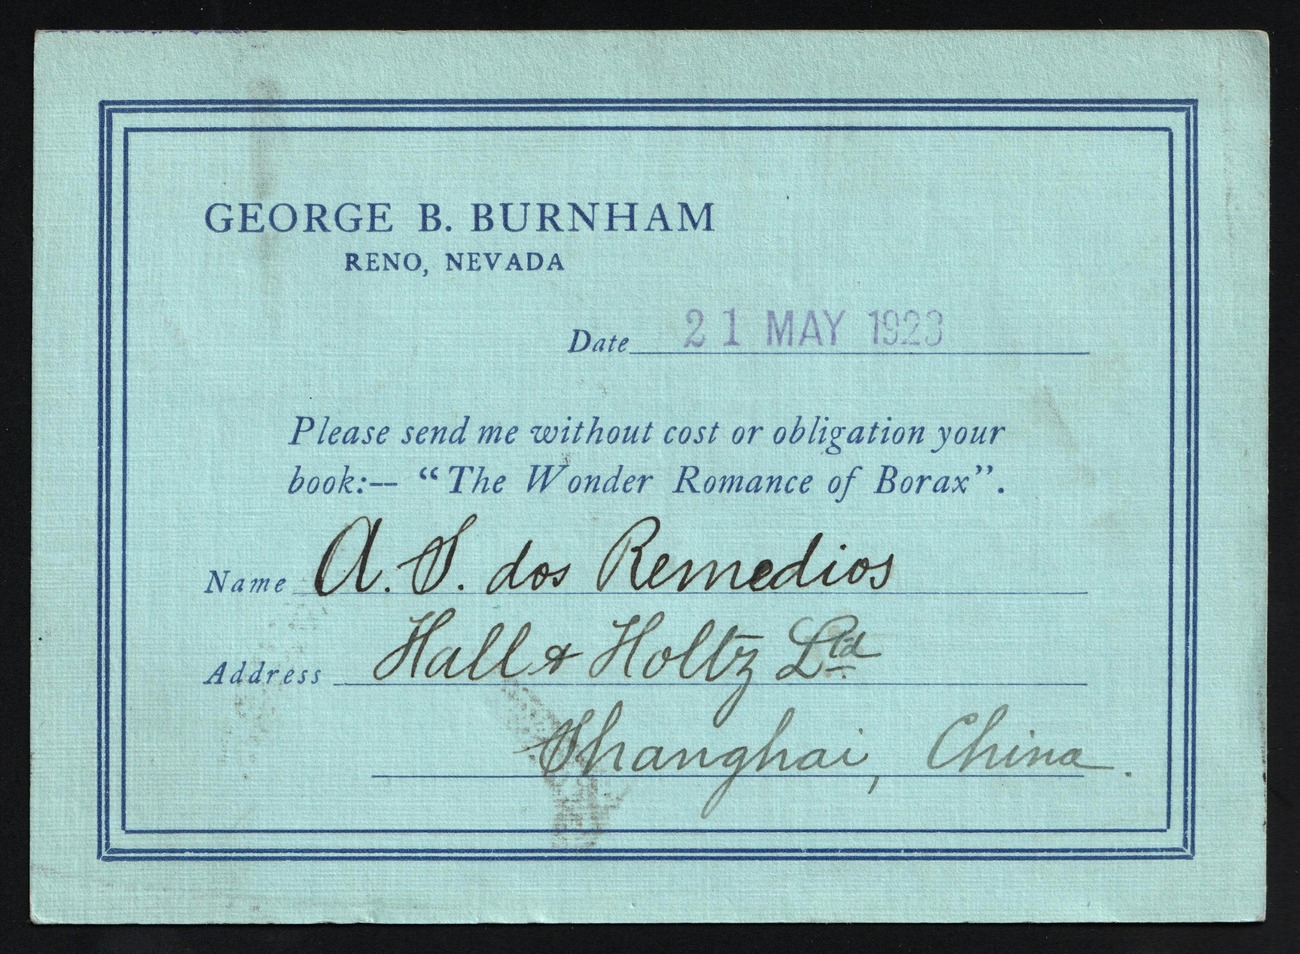 GEORGE B. BURNHAM
RENO, NEVADA
Date 21 MAY 1923
Please send me without cost or obligation your
book:— “The Wonder Romance of Borax”.
Name A. S. dos Remedios
Address Hall & Holtz Ltd
Shanghai, China.